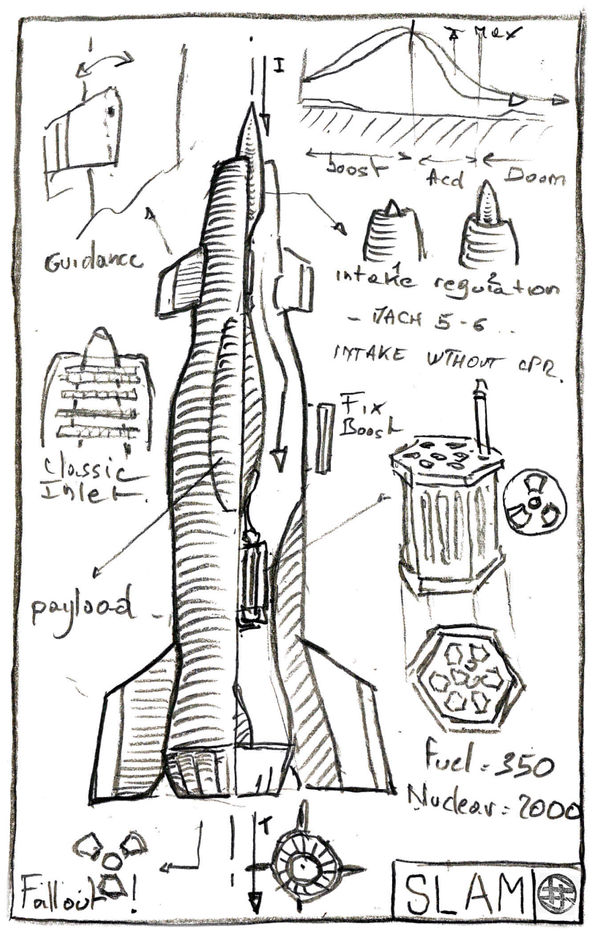 I
Max
Boost
Acd
Doom
Guidance
1 2
intake regulation
- MACH 5-6 ..
INTAKE WTHOUT CPR.
Fix
Boost
Classic
Inlet.
payload
Fuel = 350
Nuclear = 2000
T
Fallout !
SLAM